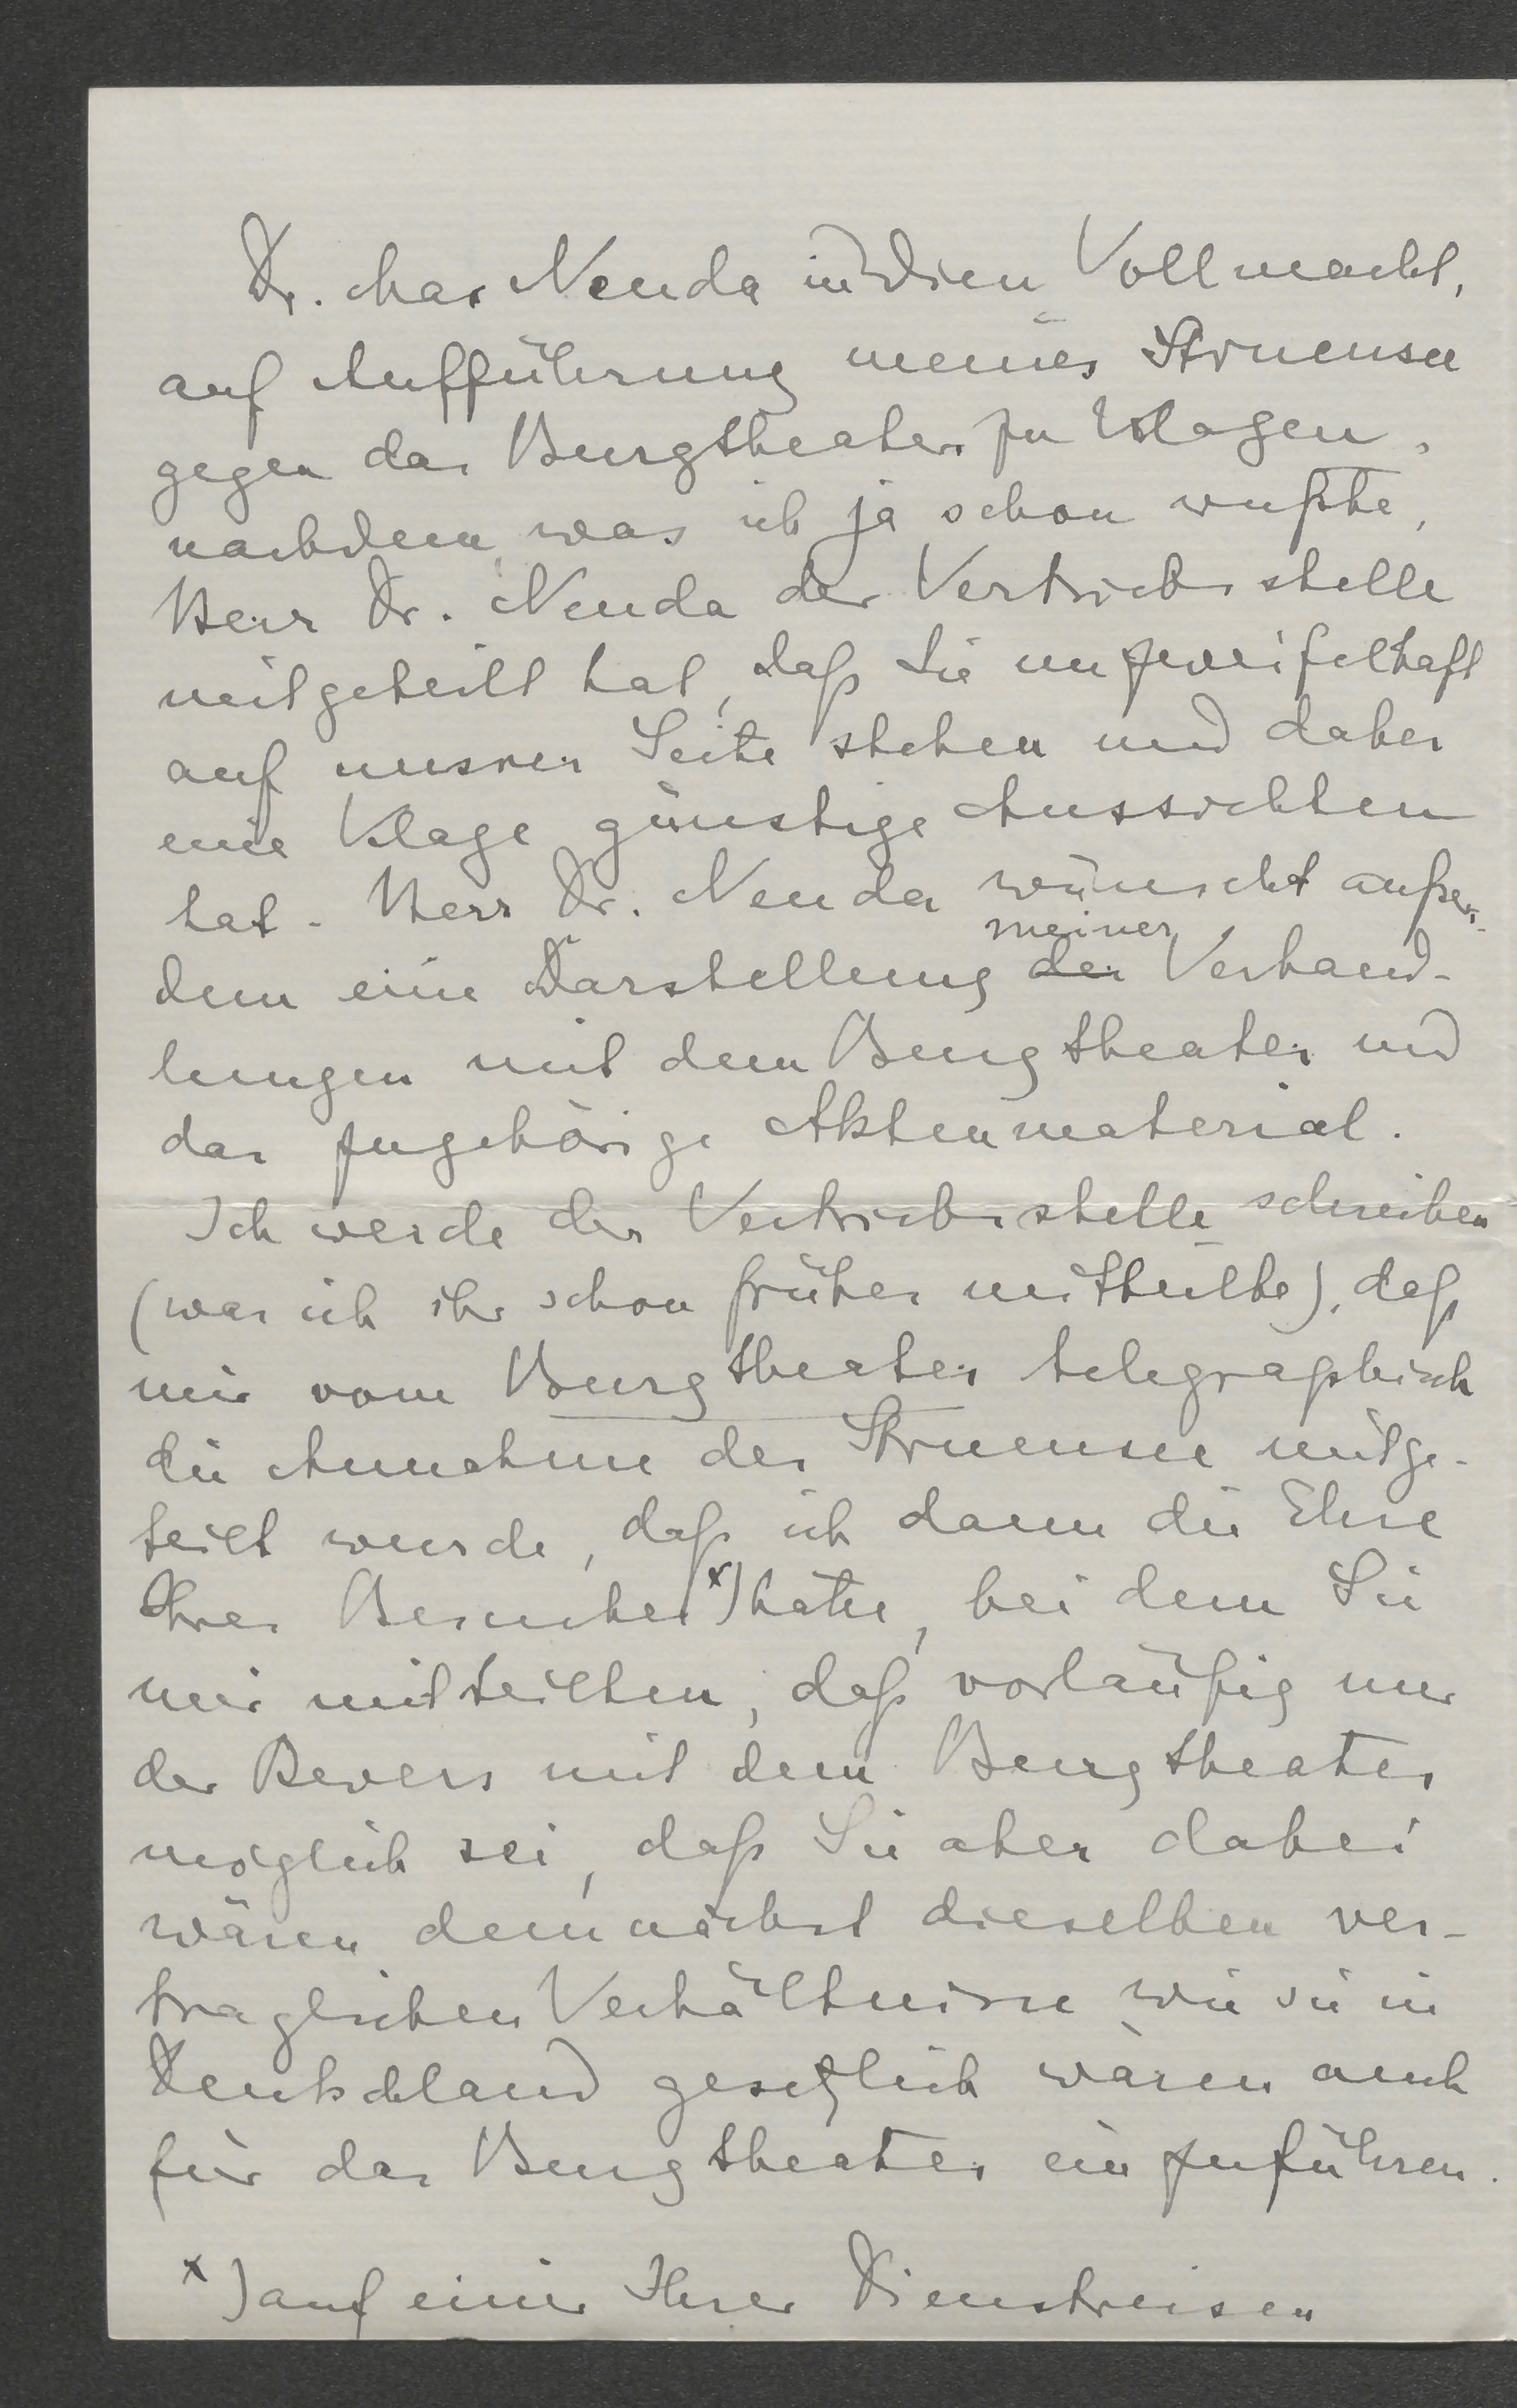 Dr. Max Neuda in Wien Vollmacht,
auf Aufführung meines Struensee
gegen das Burgtheater zu klagen,
nachdem, was ich ja schon wußte,
Herr Dr. Neuda der Vertriebsstelle
mitgeteilt hat, daß Sie unzweifelhaft
auf unsrer Seite stehen und daher
eine Klage günstige Aussichten
hat. Herr Dr. Neuda wünscht außer-
meiner
dem eine Darstellung der Verhand-
lungen mit dem Burgtheater und
das zugehörige Aktenmaterial.
Ich werde der Vertriebsstelle schreiben
(was ich ihr schon früher mittheilte), daß
mir vom Burgtheater telegraphisch
die Annahme des Struensee mitge-
teilt wurde, daß ich dann die Ehre
Ihres Besuches x) hatte, bei dem Sie
mir mitteilten, daß vorläufig nur
der Revers mit dem Burgtheater
möglich sei, daß Sie aber dabei
wären demnächst dieselben ver-
traglichen Verhältnisse wie sie in
Deutschland gesetzlich wären auch
für das Burgtheater einzuführen.
x) auf einer Ihrer Dienstreisen